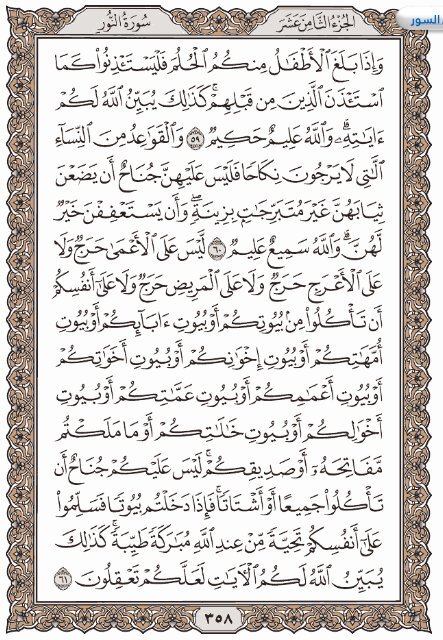 السور
الجزء الثامن عشر
سورة النور
وَإِذَا بَلَغَ ٱلْأَطْفَٰلُ مِنكُمُ ٱلْحُلُمَ فَلْيَسْتَـْٔذِنُوا۟ كَمَا
ٱسْتَـْٔذَنَ ٱلَّذِينَ مِن قَبْلِهِمْ ۚ كَذَٰلِكَ يُبَيِّنُ ٱللَّهُ لَكُمْ
ءَايَٰتِهِۦ ۗ وَٱللَّهُ عَلِيمٌ حَكِيمٌ ٥٩ وَٱلْقَوَٰعِدُ مِنَ ٱلنِّسَآءِ
ٱلَّٰتِى لَا يَرْجُونَ نِكَاحًا فَلَيْسَ عَلَيْهِنَّ جُنَاحٌ أَن يَضَعْنَ
ثِيَابَهُنَّ غَيْرَ مُتَبَرِّجَٰتٍۭ بِزِينَةٍ ۖ وَأَن يَسْتَعْفِفْنَ خَيْرٌ
لَّهُنَّ ۗ وَٱللَّهُ سَمِيعٌ عَلِيمٌ ٦٠ لَّيْسَ عَلَى ٱلْأَعْمَىٰ حَرَجٌ وَلَا
عَلَى ٱلْأَعْرَجِ حَرَجٌ وَلَا عَلَى ٱلْمَرِيضِ حَرَجٌ وَلَا عَلَىٰٓ أَنفُسِكُمْ
أَن تَأْكُلُوا۟ مِنۢ بُيُوتِكُمْ أَوْ بُيُوتِ ءَابَآئِكُمْ أَوْ بُيُوتِ
أُمَّهَٰتِكُمْ أَوْ بُيُوتِ إِخْوَٰنِكُمْ أَوْ بُيُوتِ أَخَوَٰتِكُمْ
أَوْ بُيُوتِ أَعْمَٰمِكُمْ أَوْ بُيُوتِ عَمَّٰتِكُمْ أَوْ بُيُوتِ
أَخْوَٰلِكُمْ أَوْ بُيُوتِ خَٰلَٰتِكُمْ أَوْ مَا مَلَكْتُم
مَّفَاتِحَهُۥٓ أَوْ صَدِيقِكُمْ ۚ لَيْسَ عَلَيْكُمْ جُنَاحٌ أَن
تَأْكُلُوا۟ جَمِيعًا أَوْ أَشْتَاتًا ۚ فَإِذَا دَخَلْتُم بُيُوتًا فَسَلِّمُوا۟
عَلَىٰٓ أَنفُسِكُمْ تَحِيَّةً مِّنْ عِندِ ٱللَّهِ مُبَٰرَكَةً طَيِّبَةً ۚ كَذَٰلِكَ
يُبَيِّنُ ٱللَّهُ لَكُمُ ٱلْءَايَٰتِ لَعَلَّكُمْ تَعْقِلُونَ ٦١
٣٥٨